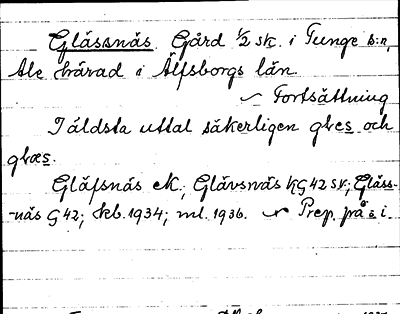 Glässnäs Gård 1/2 sk. i Tunge s:n,
Ale härad i Älfsborgs län.
~ Fortsättning
I äldsta uttal säkerligen gles och
glæs.
Gläfsnäs ek.; Glävsnäs KG 42 sk; Gläss-
-näs G 42; kb. 1934; ml. 1936. ~ Prep. på s i.